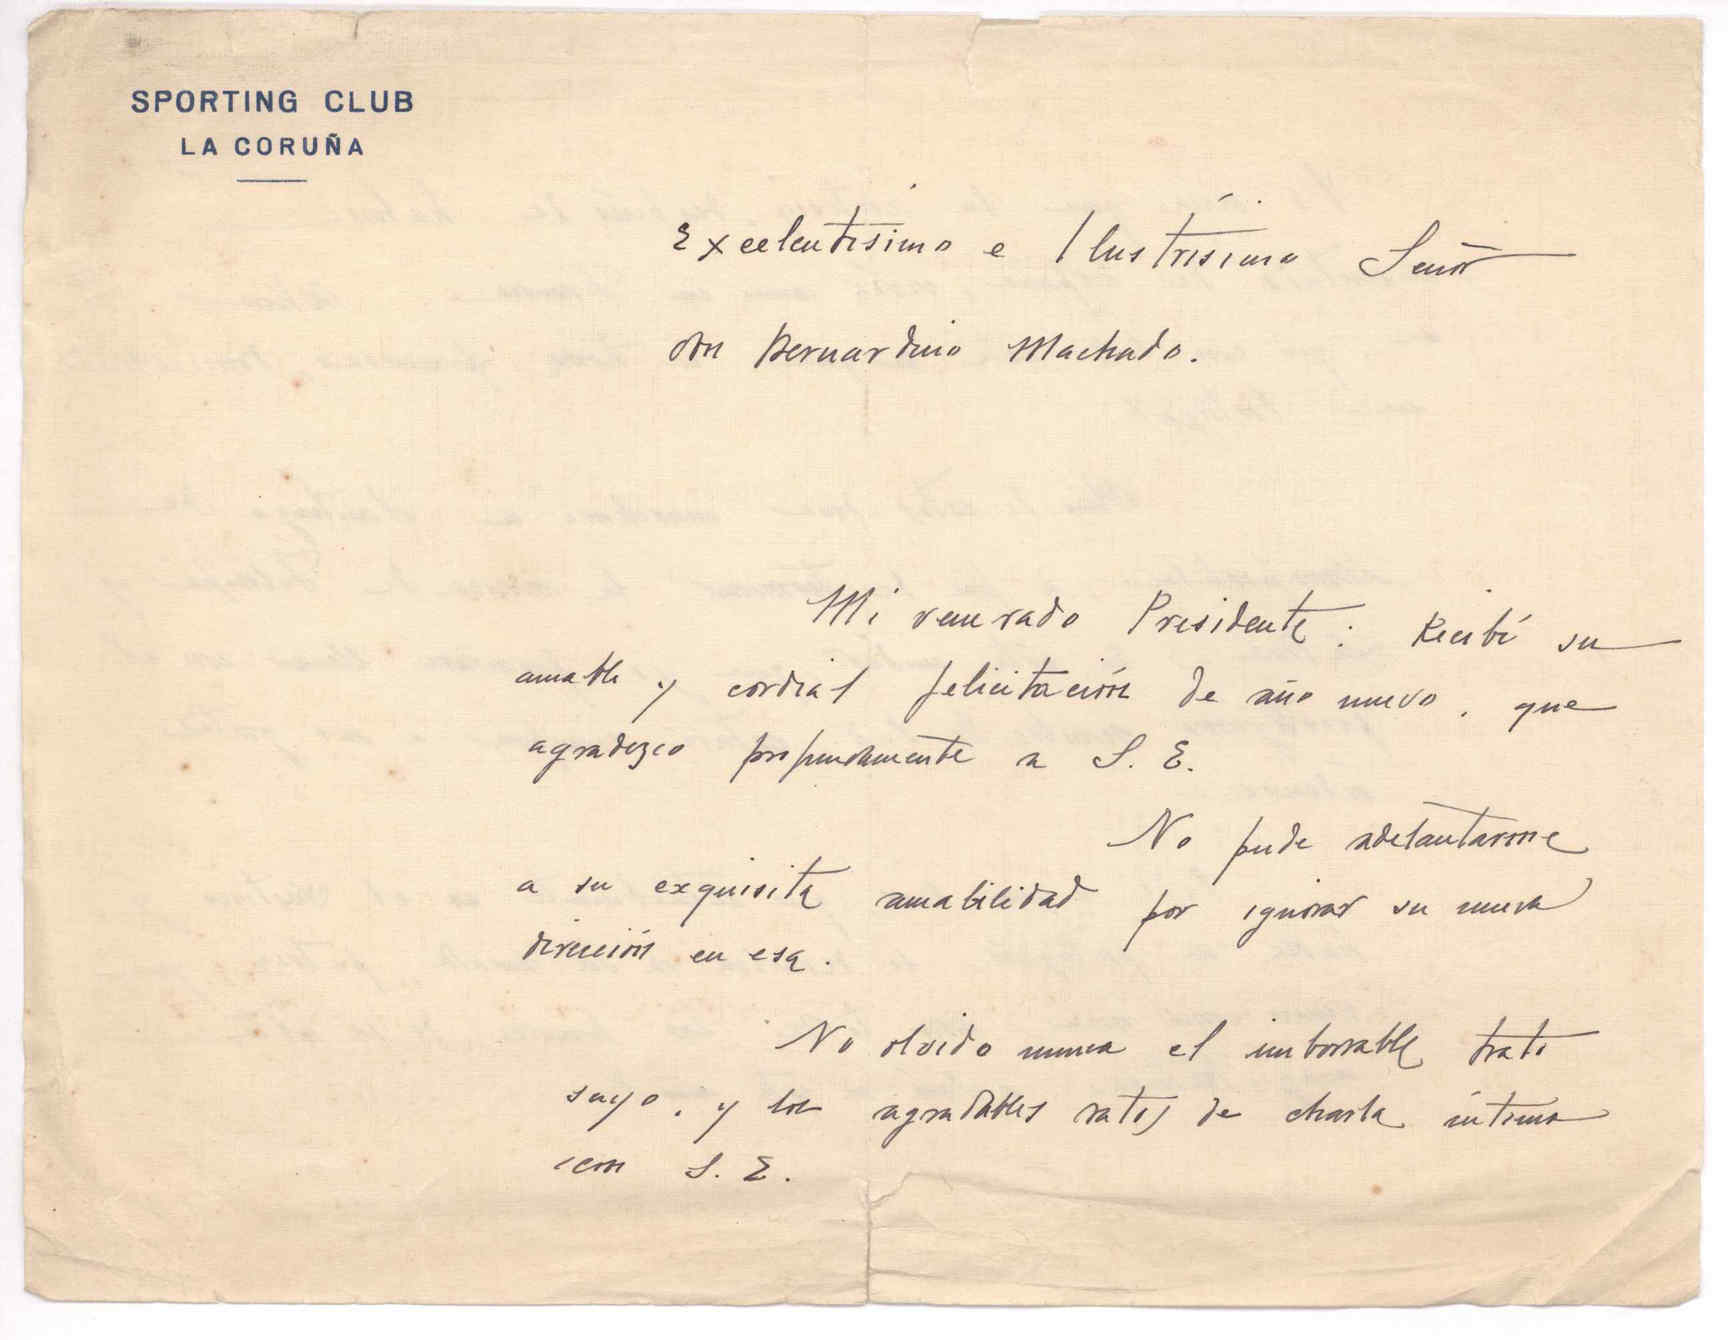 SPORTING CLUB
LA CORUÑA
Excelentísimo e Ilustrísimo Señor
don Bernardino Machado.
Mi venerado Presidente: Recibí su
amable y cordial felicitación de año nuevo, que
agradezco profundamente a S. E.
No pude adelantarme
a su exquisita amabilidad por ignorar su nueva
dirección en esa.
No olvido nunca el imborrable trato
suyo, y los agradables ratos de charla íntima
con S. E.